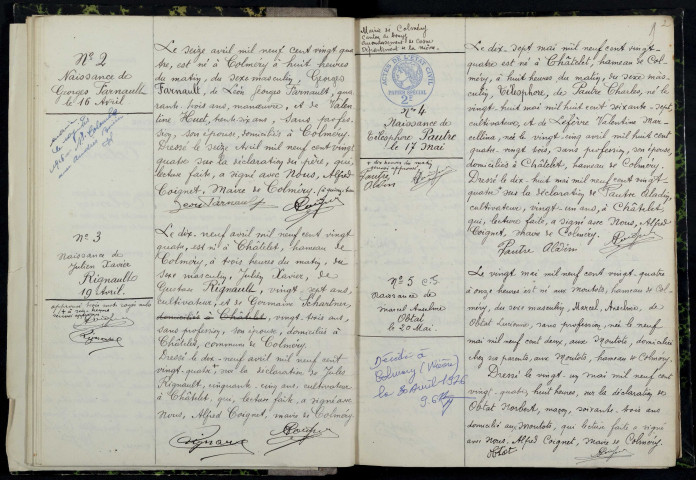 N° 2
Naissance de
Georges Farnault
le 16 Avril
Le seize avril mil neuf cent vingt qua
tre, est né à Colméry à huit heures
du matin, du sexe masculin, Georges
Farnault, de Léon Georges Farnault, qua
rante trois ans, manœuvre, et de Valen
tine Huet, trente six ans, sans profes
sion, son épouse, domiciliés à Colméry.
Dressé le seize Avril mil neuf cent vingt
quatre sur la déclaration du père, qui,
lecture faite, a signé avec Nous, Alfred
Coignet, Maire de Colméry.
N° 3
Naissance de
Julien Xavier
Rignault
19 avril.
Le dix neuf avril mil neuf cent vingt
quatre, est né à Châtelet, hameau de
Colméry, à trois heures du matin, du
sexe masculin, Xavier, de
Gustave Rignault, vingt sept ans,
cultivateur, et de Germaine
domiciliés à Châtelet, vingt trois ans,
sans profession, son épouse, domiciliés à
Châtelet, commune de Colméry.
Dressé le dix neuf avril mil neuf cent
vingt quatre sur la déclaration de Jules
Rignault, cinquante cinq ans, cultivateur
à Châtelet, qui, lecture faite, a signé avec
Nous, Alfred Coignet, maire de Colméry
Mairie de Colméry
Canton de Donzy
Arrondissement de Cosne
Département de la Nièvre.
2
ACTES DE L'ETAT CIVIL
N° 4
Naissance de
Télesphore Pautre
le 17 mai
Le dix sept mai mil neuf cent vingt
quatre est né à Châtelet, hameau de Col
méry, à huit heures du matin, du sexe mas
culin, Télesphore, de Pautre Charles, né le
vingt huit mai mil huit cent soixante sept,
cultivateur, et de Lefèvre Valentine Mar
cellina, née le vingt cinq avril mil huit cent
quatre vingt trois, sans profession, son épouse,
domiciliés à Châtelet, hameau de Colméry.
Dressé le dix huit mai mil neuf cent vingt
quatre, sur la déclaration de Pautre
cultivateur, vingt un ans, à Châtelet
qui, lecture faite, a signé avec Nous, Alfred
Coignet, maire de Colméry.
N° 5
Naissance de
Marcel Anselme
Obtat
le 20 Mai.
Décédé à
Colméry (Nièvre)
le 30 Avril 1926
Le vingt mai mil neuf cent vingt quatre
à onze heures est né aux Moutots, hameau de Col
méry, du sexe masculin, Marcel Anselme, de
Obtat Lucienne, sans profession, née le neuf
mai mil neuf cent deux, aux Moutots, domiciliée
chez ses parents, aux Moutots, hameau de Colméry.
Dressé le vingt un mai mil neuf cent
vingt quatre, huit heures, sur la déclaration de
Obtat Norbert, maçon, soixante trois ans
domicilié aux Moutots, qui lecture faite a signé
avec Nous Alfred Coignet, Maire de Colméry.
Obtat